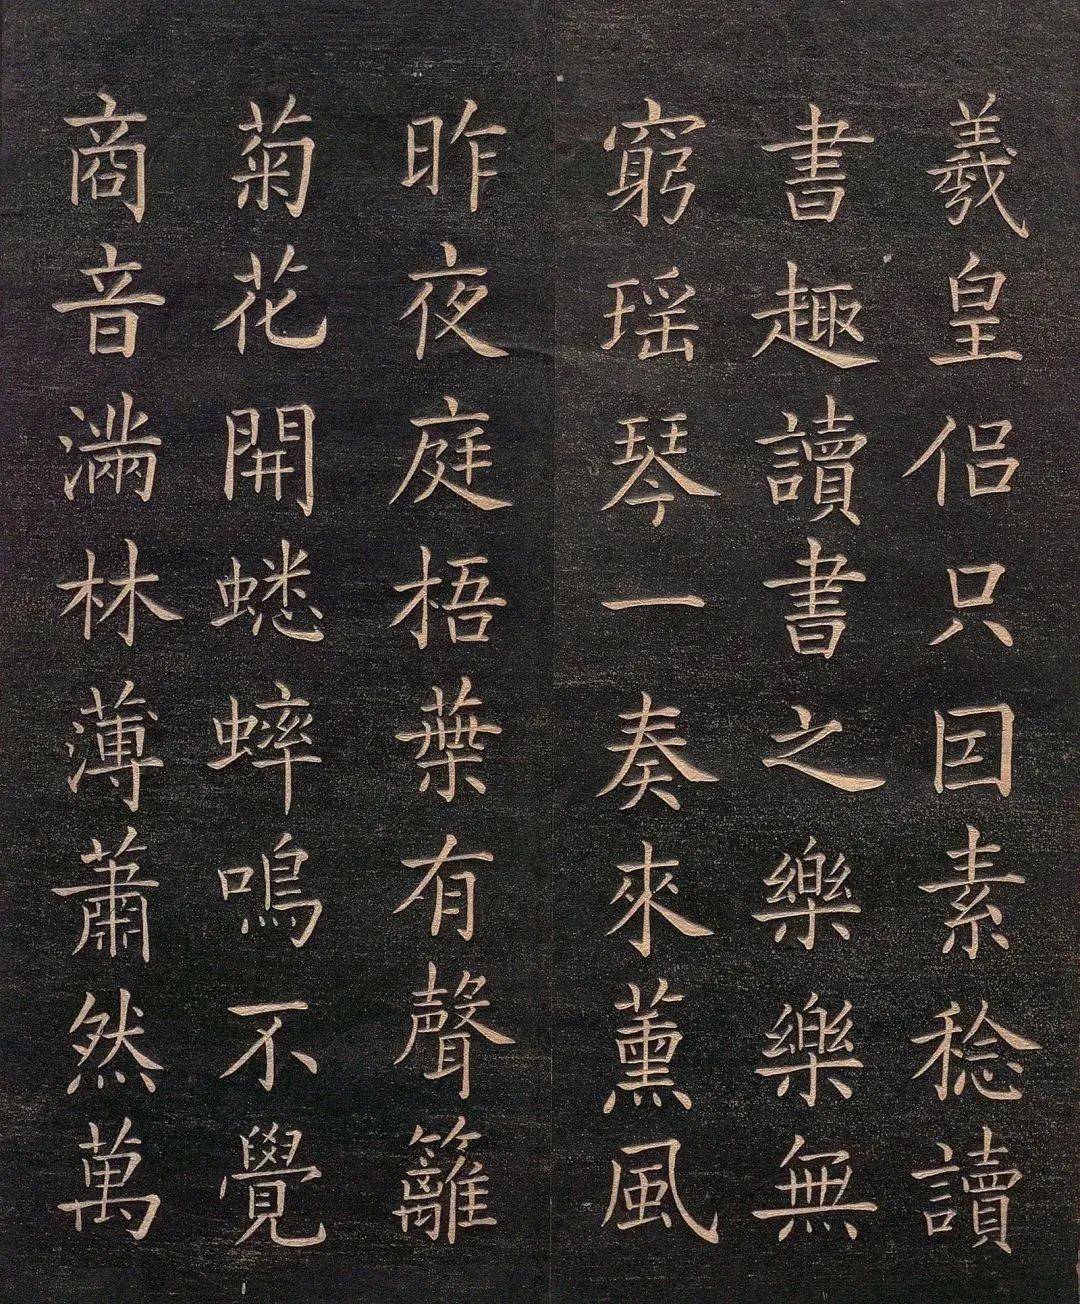 羲皇侣只囙素稔讀
書趣讀書之樂樂無
窮瑶琴一奏來薰風
昨夜庭梧葉有聲籬
菊花開蟋蟀鳴不覺
商音滿林薄蕭然萬